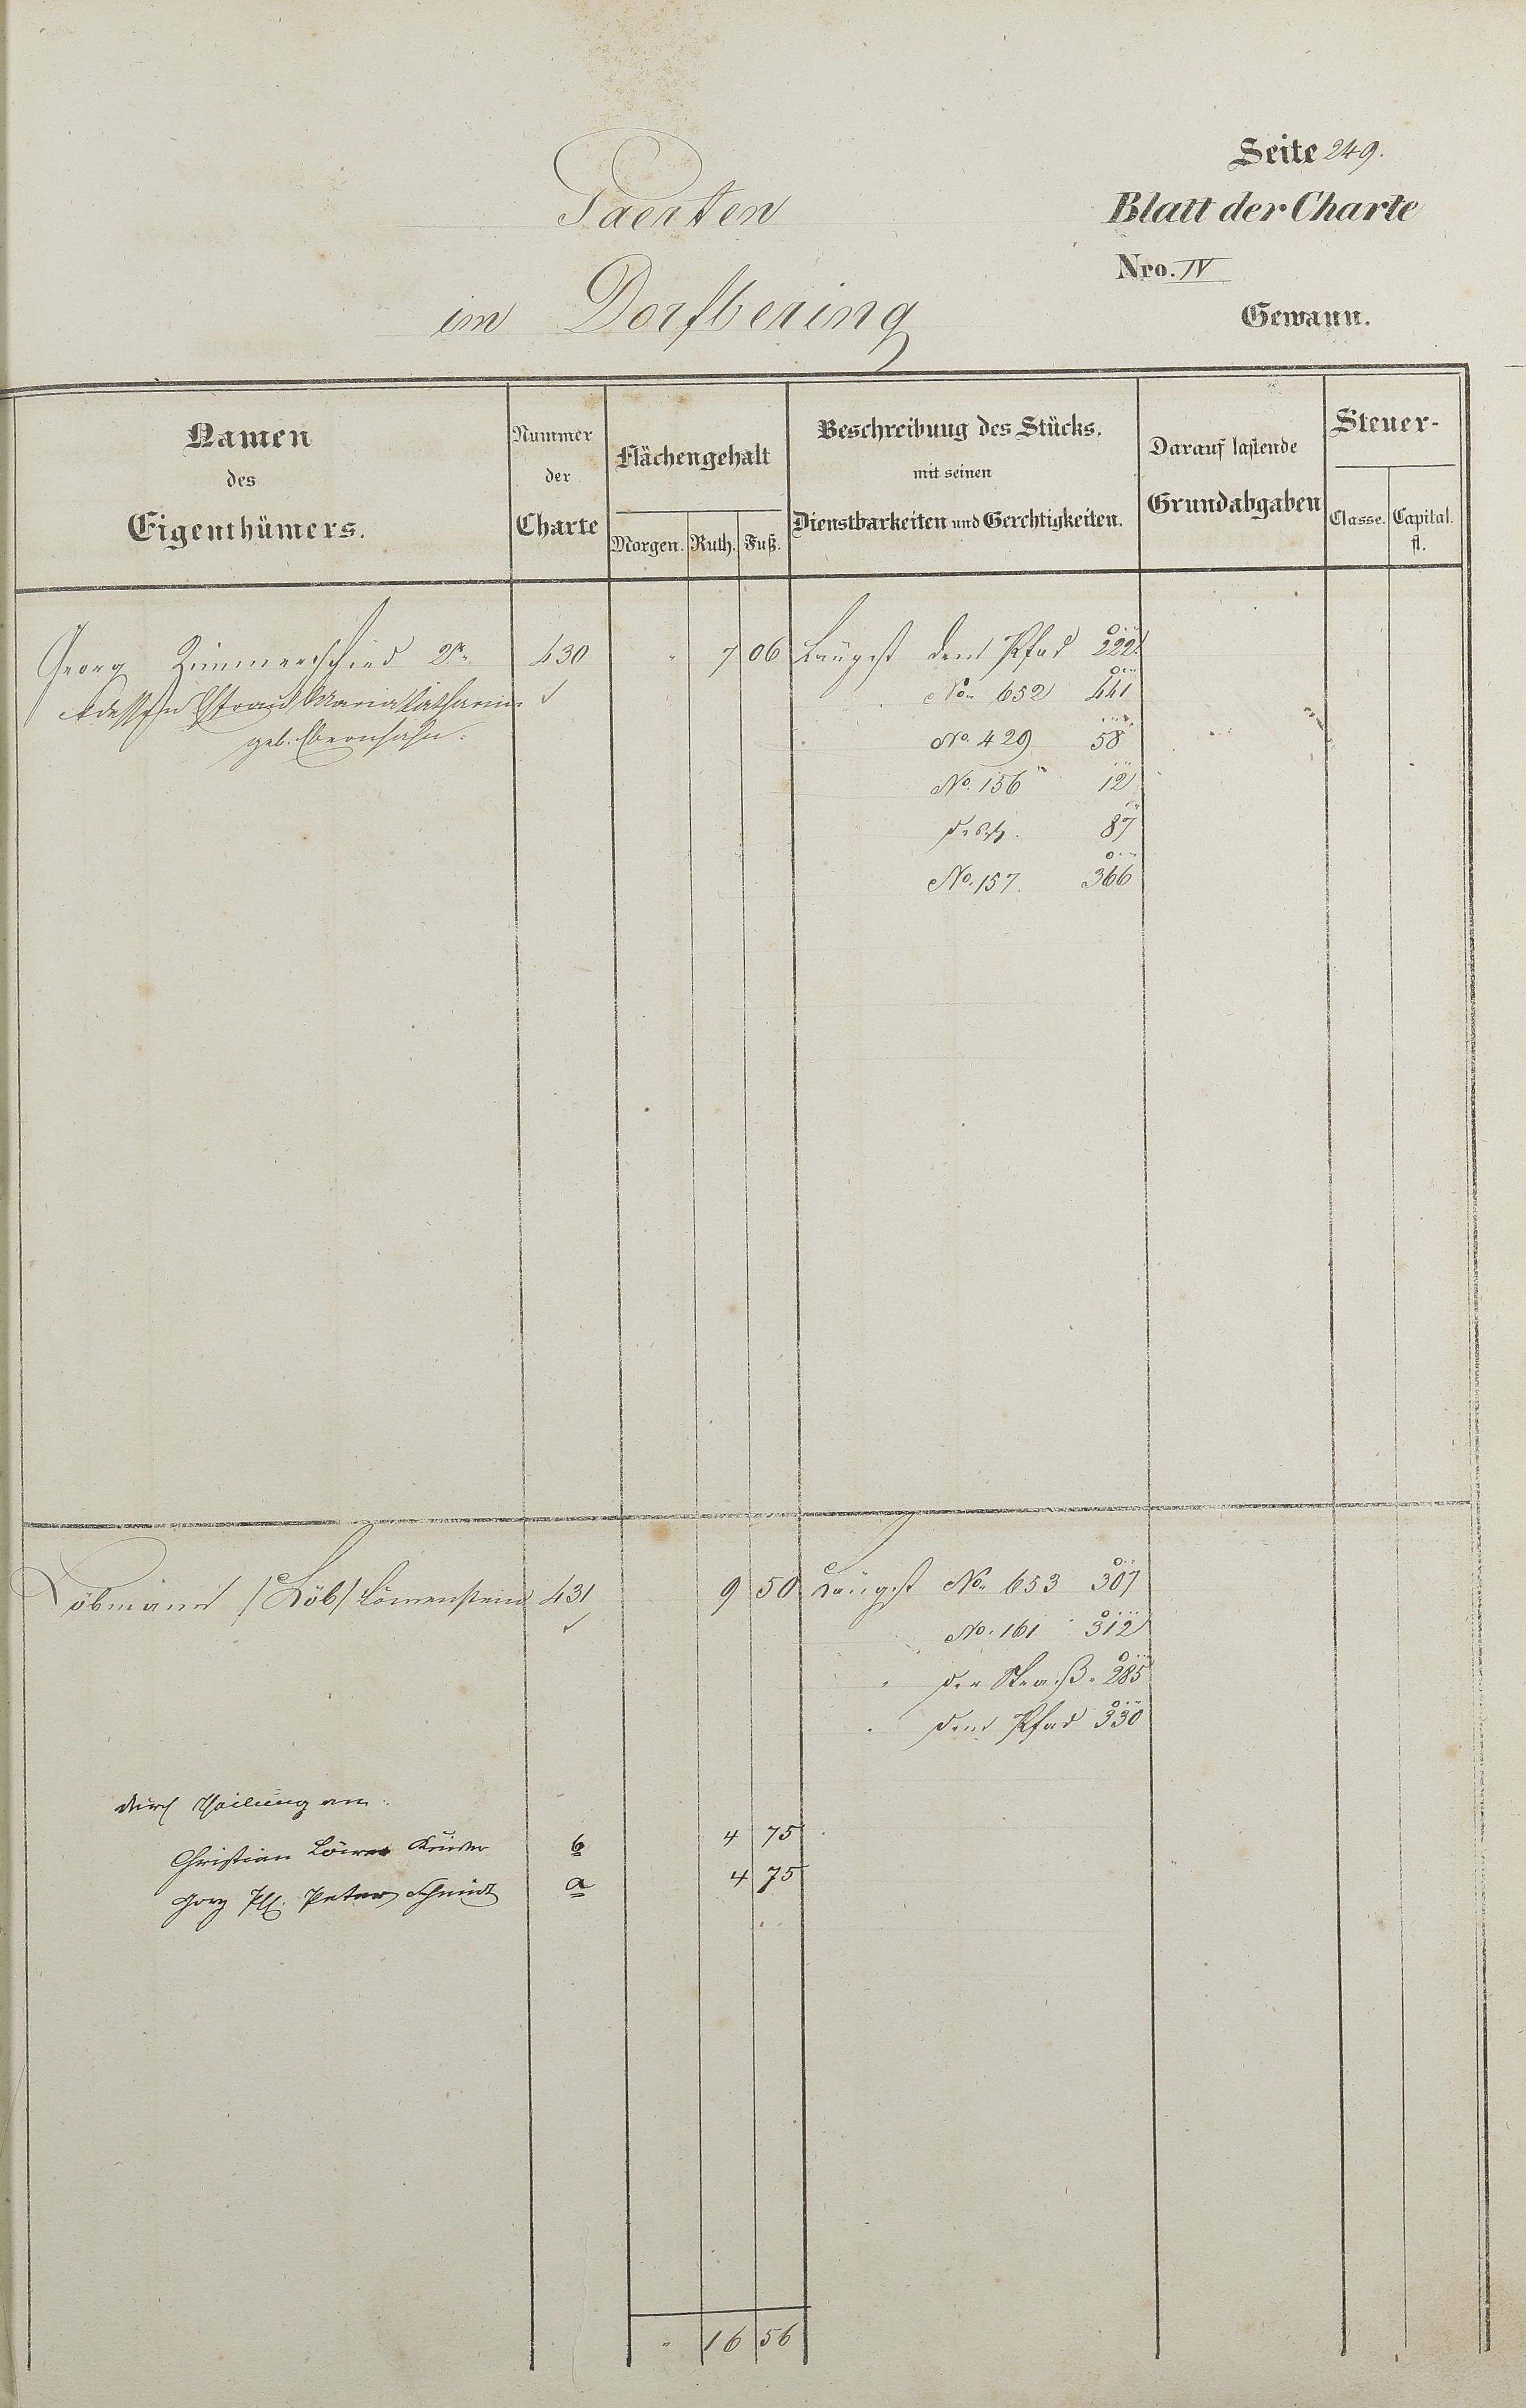 Seite 249.
Gaerten
Blatt der Charte
Nro. IV
im Dorfbering
Gewann.
Namen
des
Eigenthümers.
Nummer
der
Charte
Flächengehalt
Morgen. Ruth. Fuß.
Beschreibung des Stücks,
mit seinen
Dienstbarkeiten und Gerechtigkeiten.
Darauf lastende
Grundabgaben
Steuer-
Classe. Capital.
fl.
Georg Zimmerschied 2r. 430 " 7 06 Längst dem Pfad 222
dessen Ehefrau Maria Catharina No. 652 441
geb. No. 429 58
No. 156 12
87
No. 157. 366
Löbmann /Löb/ Löwenstein 431 9 50 Längst No. 653 307
No. 161 312
" der Straße 285
" dem Pfad 330
durch Theilung an:
Christian b 4 75
Peter Schmidt a 4 75
" 16 56